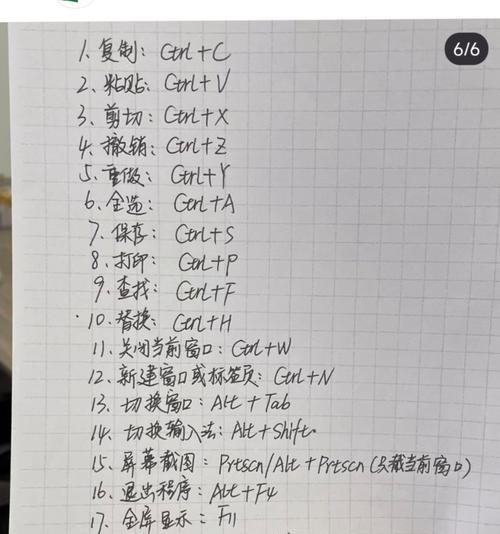 6/6
1. 复制: Ctrl+C
2. 粘贴: Ctrl+V
3. 剪切: Ctrl+X
4. 撤销: Ctrl+Z
5. 重做: Ctrl+Y
6. 全选: Ctrl+A
7. 保存: Ctrl+S
8. 打印: Ctrl+P
9. 查找: Ctrl+F
10. 替换: Ctrl+H
11. 关闭当前窗口: Ctrl+W
12. 新建窗口或标签页: Ctrl+N
13. 切换窗口: Alt+Tab
14. 切换输入法: Alt+Shift
15. 屏幕截图: Prtscn/Alt+Prtscn(只截当前窗口)
16. 退出程序: Alt+F4
17. 全屏显示: F11